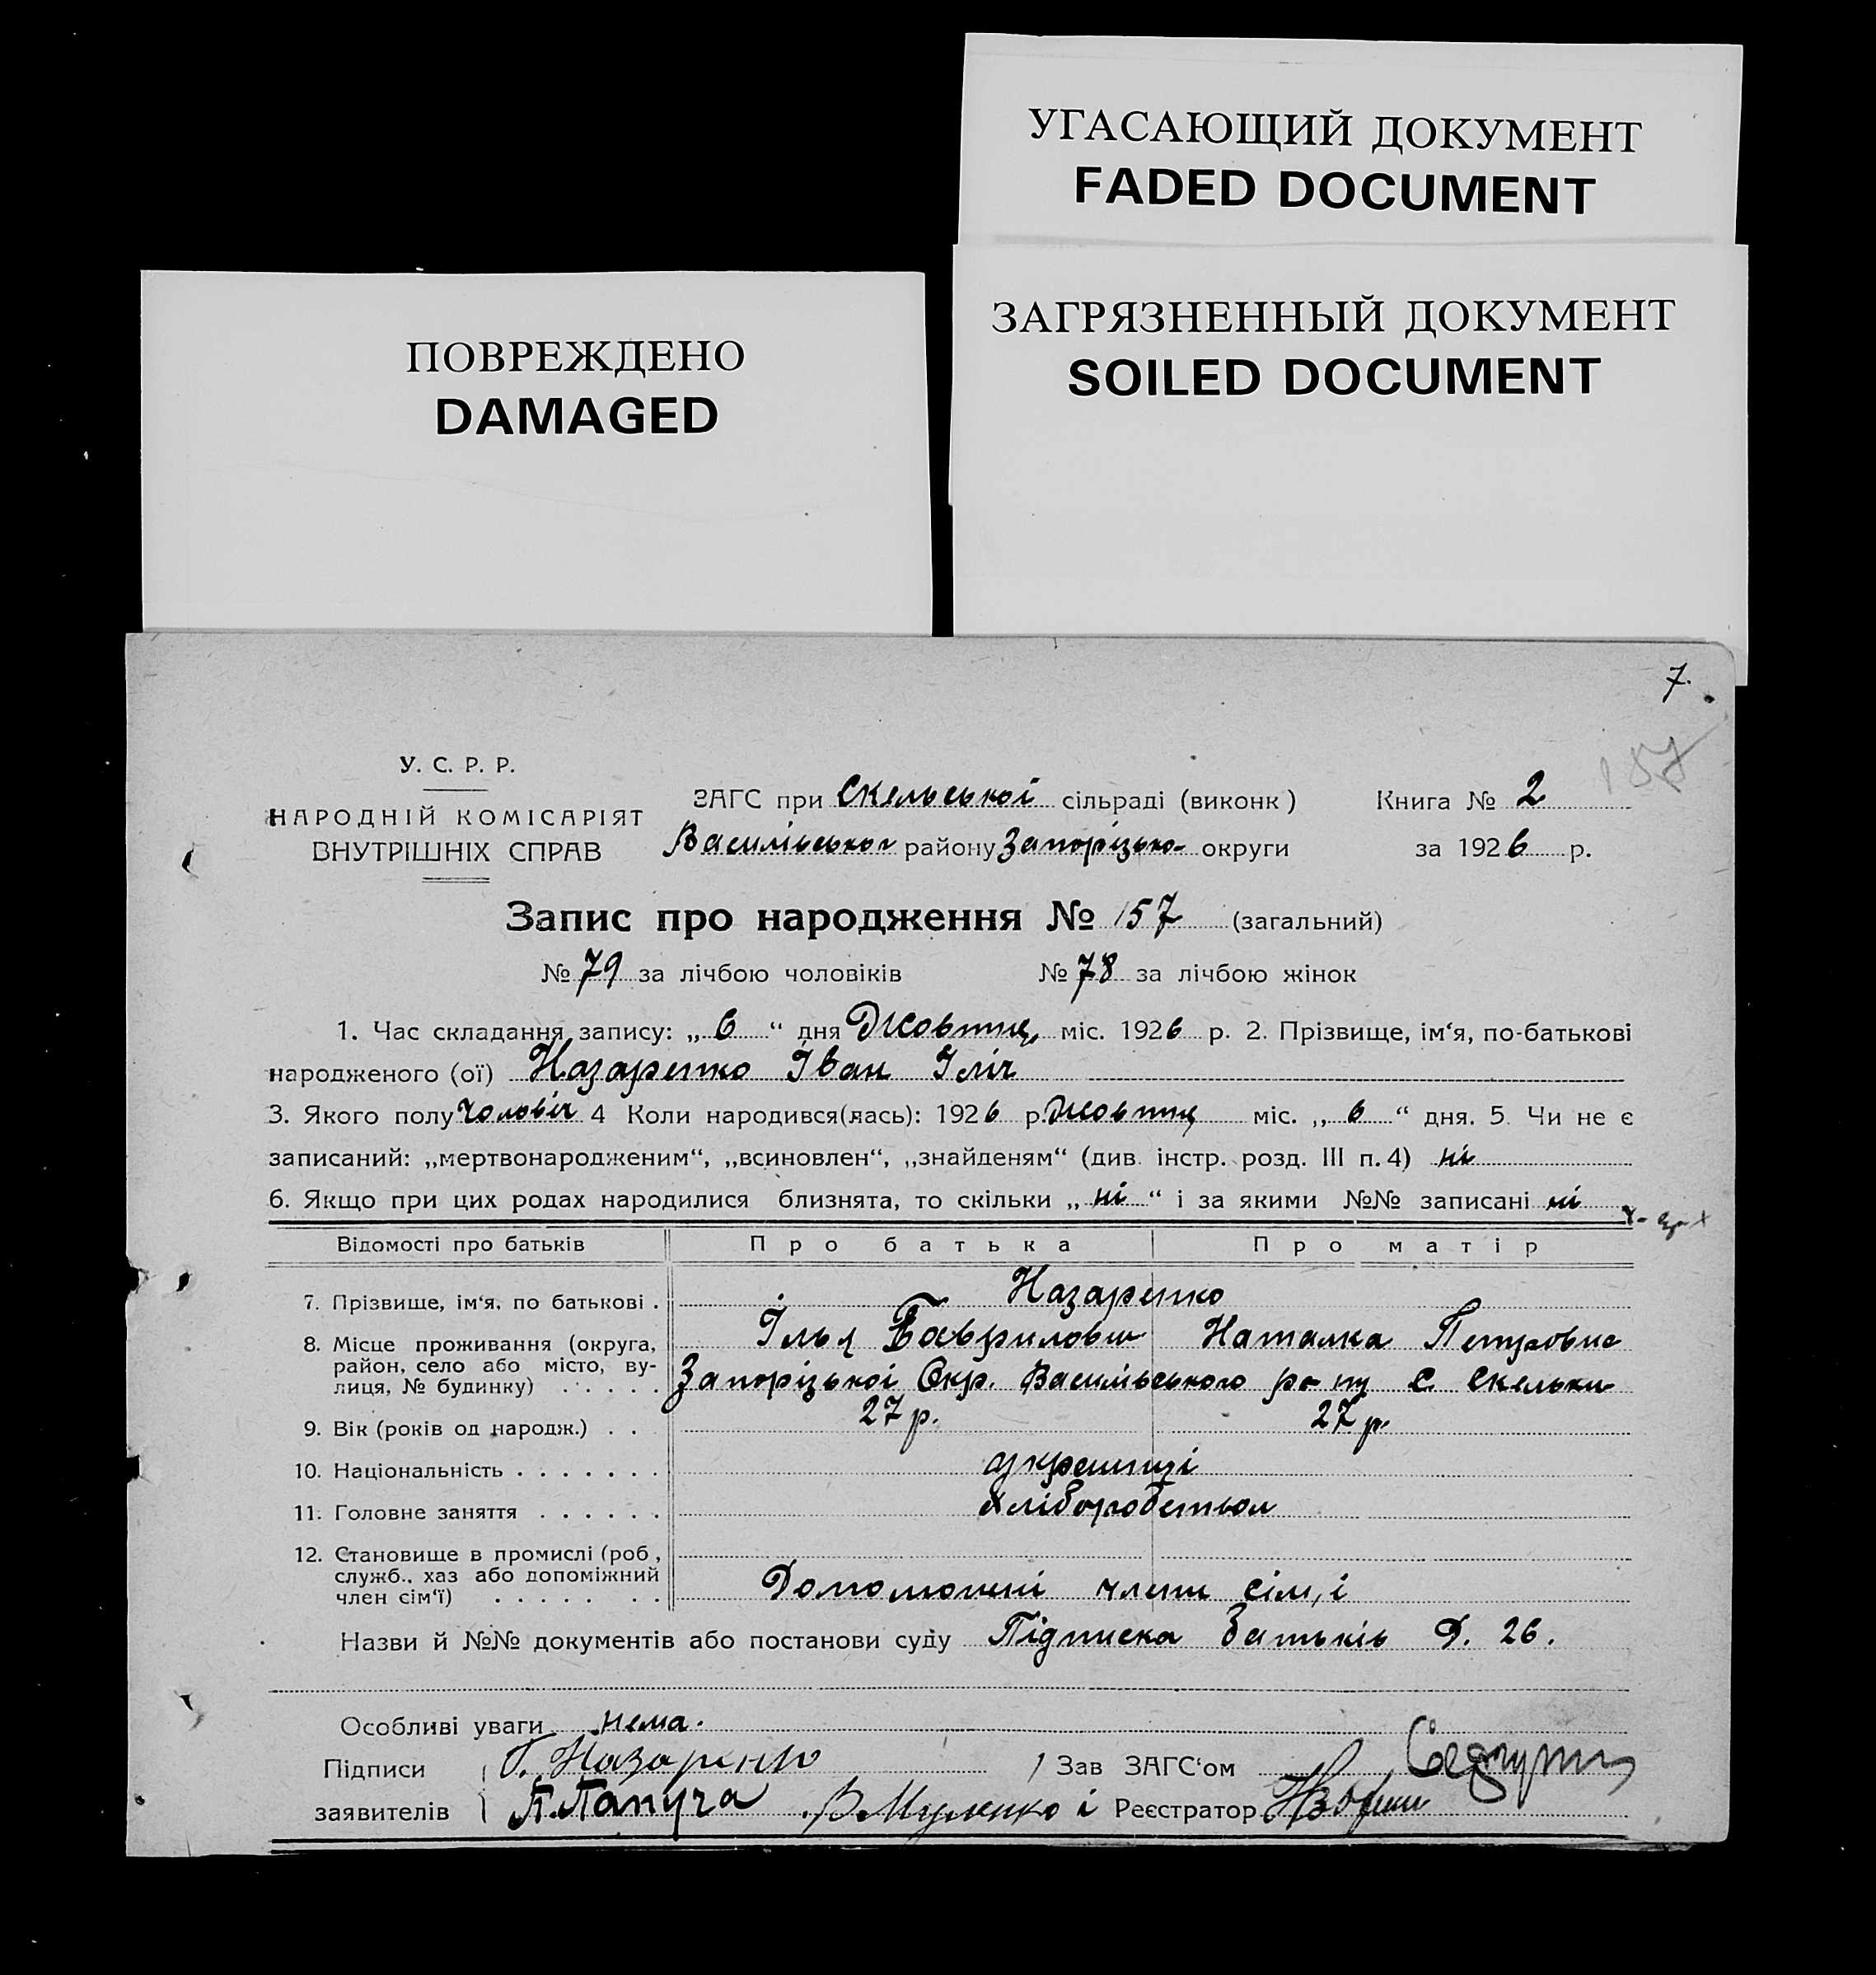 УГАСАЮЩИЙ ДОКУМЕНТ
FADED DOCUMENT
ЗАГРЯЗНЕННЫЙ ДОКУМЕНТ
SOILED DOCUMENT
ПОВРЕЖДЕНО
DAMAGED
7.
157
У. С. Р. Р.
НАРОДНІЙ КОМІСАРІЯТ
ВНУТРІШНІХ СПРАВ
ЗАГС при Скельської сільраді (виконк)
Василівського району Запорізько- округи
Книга № 2
за 1926 р.
Запис про народження № 157 (загальний)
№ 79 за лічбою чоловіків № 78 за лічбою жінок
1. Час складання запису: „ 6 “ дня Жовтня міс. 1926 р. 2. Прізвище, ім‘я, по-батькові
народженого (ої) Назаренко Іван Іліч
3. Якого полу Чоловіч 4 Коли народився(лась): 1926 р. Жовтня міс. „ 6 “ дня. 5. Чи не є
записаний: „мертвонародженим“, „всиновлен“, „знайденям“ (див. інстр. розд. III п. 4) ні
6. Якщо при цих родах народилися близнята, то скільки „ ні “ і за якими №№ записані ні
Відомості про батьків Про батька Про матір
7. Прізвище, ім‘я, по батькові . Назаренко
Ілья Гаврилович Наталка Петровна
8. Місце проживання (округа,
район, село або місто, ву-
лиця, № будинку) . . . . . Запорізької Окр. Василівського ра-ну С. Скельки
9. Вік (років од народж.) . . 27 р. 27 р.
10. Національність . . . . . . . українці
11. Головне заняття . . . . . . хлібороб
12. Становище в промислі (роб.,
служб., хаз або допоміжний
член сім‘ї) . . . . . . . Допоможні члени сім,ї
Назви й №№ документів або постанови суду Підписка батьків Д. 26.
Особливі уваги нема.
Підписи Назаренко Зав ЗАГС‘ом
заявителів П. Папуча і Реєстратор